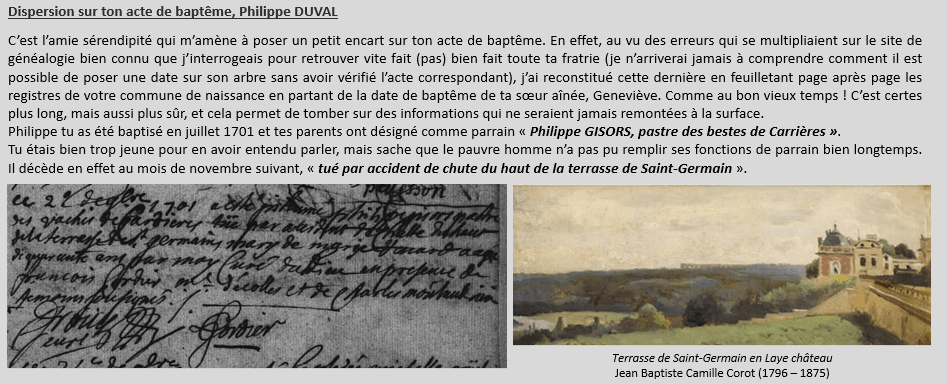 Dispersion sur ton acte de baptême, Philippe DUVAL
C’est l’amie sérendipité qui m’amène à poser un petit encart sur ton acte de baptême. En effet, au vu des erreurs qui se multipliaient sur le site de
généalogie bien connu que j’interrogeais pour retrouver vite fait (pas) bien fait toute ta fratrie (je n’arriverai jamais à comprendre comment il est
possible de poser une date sur son arbre sans avoir vérifié l’acte correspondant), j’ai reconstitué cette dernière en feuilletant page après page les
registres de votre commune de naissance en partant de la date de baptême de ta sœur aînée, Geneviève. Comme au bon vieux temps ! C’est certes
plus long, mais aussi plus sûr, et cela permet de tomber sur des informations qui ne seraient jamais remontées à la surface.
Philippe tu as été baptisé en juillet 1701 et tes parents ont désigné comme parrain « Philippe GISORS, pastre des bestes de Carrières ».
Tu étais bien trop jeune pour en avoir entendu parler, mais sache que le pauvre homme n’a pas pu remplir ses fonctions de parrain bien longtemps.
Il décède en effet au mois de novembre suivant, « tué par accident de chute du haut de la terrasse de Saint-Germain ».
1701 a este
des vaches de par accident du haut
de la terrasse de St germain
ans par moy Curé en presence de
francois
temoins
Terrasse de Saint-Germain en Laye château
Jean Baptiste Camille Corot (1796 – 1875)